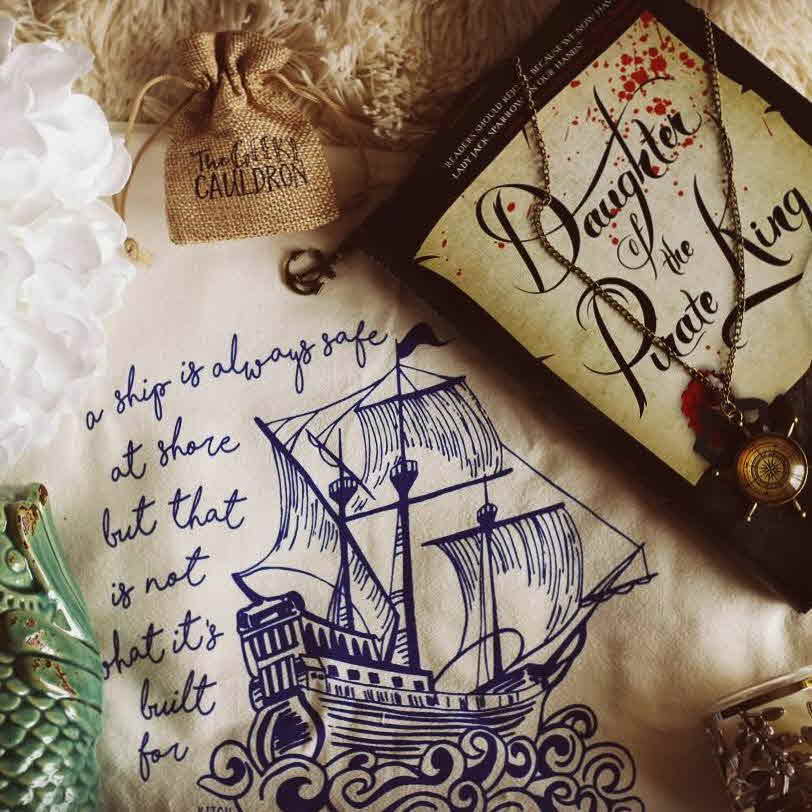 The Geeky
CAULDRON
"READERS SHOULD REJOICE BECAUSE WE NOW HAVE
LADY JACK SPARROW IN OUR HANDS"
Daughter
of the
Pirate King
a ship is always safe
at shore
but that
is not
what it's
built
for